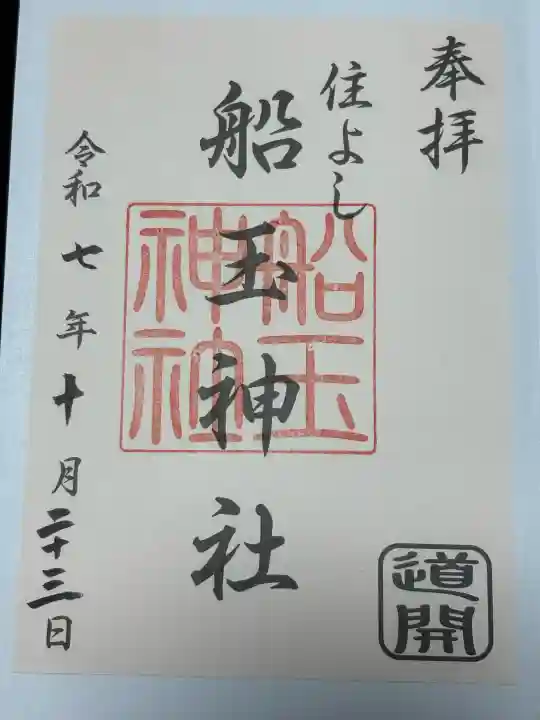 奉拝
住よし
船玉神社
船玉
神社
令和七年十月二十三日
道開